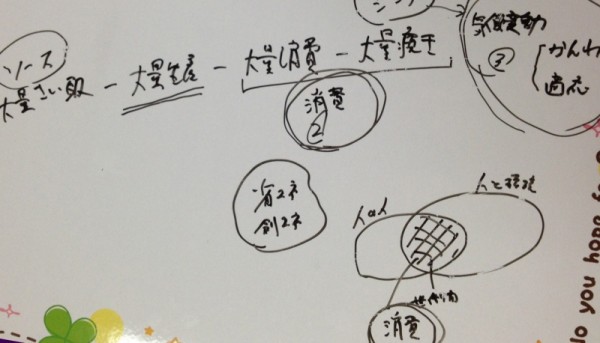 ソース
シンク
気候変動
③
かんわ
適応
大量さい取 - 大量生産 - 大量消費 - 大量廃棄
消費
②
省エネ
創エネ
人と人
人と環境
消費
do you hope fo